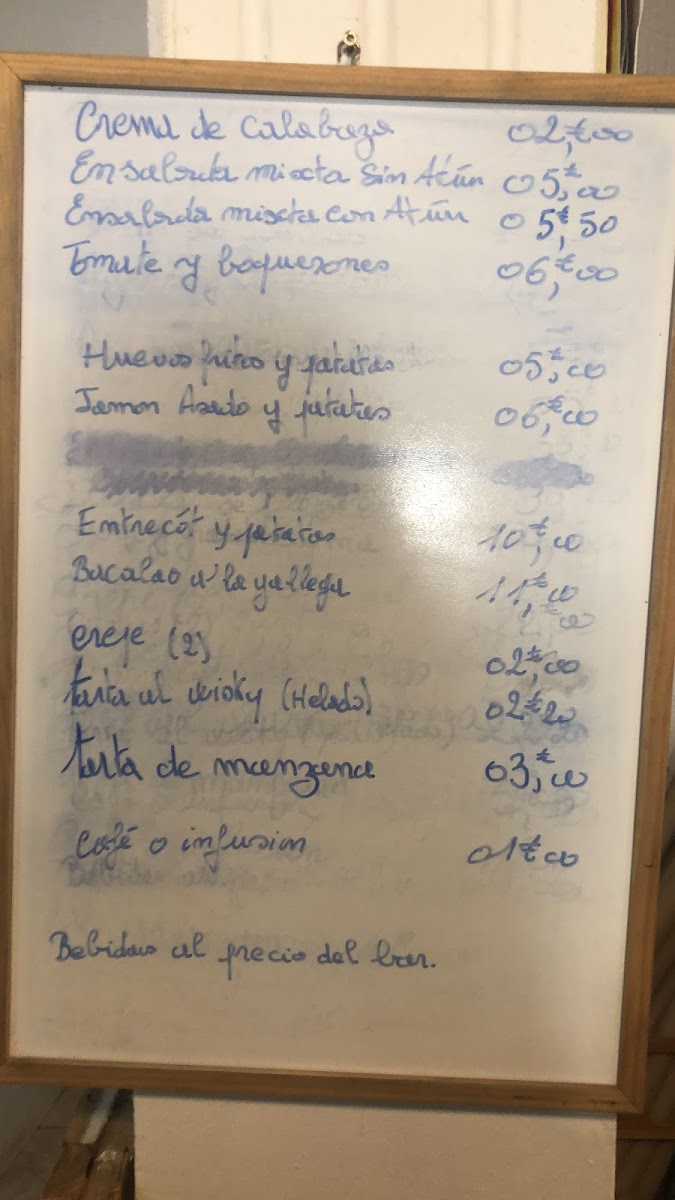 Crema de Calabaza 02,€00
Ensalada mixta Sin Atún 05,€00
Ensalada mixta con Atún 05,€50
Tomate y boquerones 06,€00
Huevos fritos y patatas 05,€00
Jamon Asado y patatas 06,€00
Entrecót y patatas 10,€00
Bacalao a la gallega 11,€00
(2) 02,€00
tarta al wisky (Helado) 02€20
tarta de manzana 03,€00
Café o infusion 01€00
Bebidas al precio del bar.